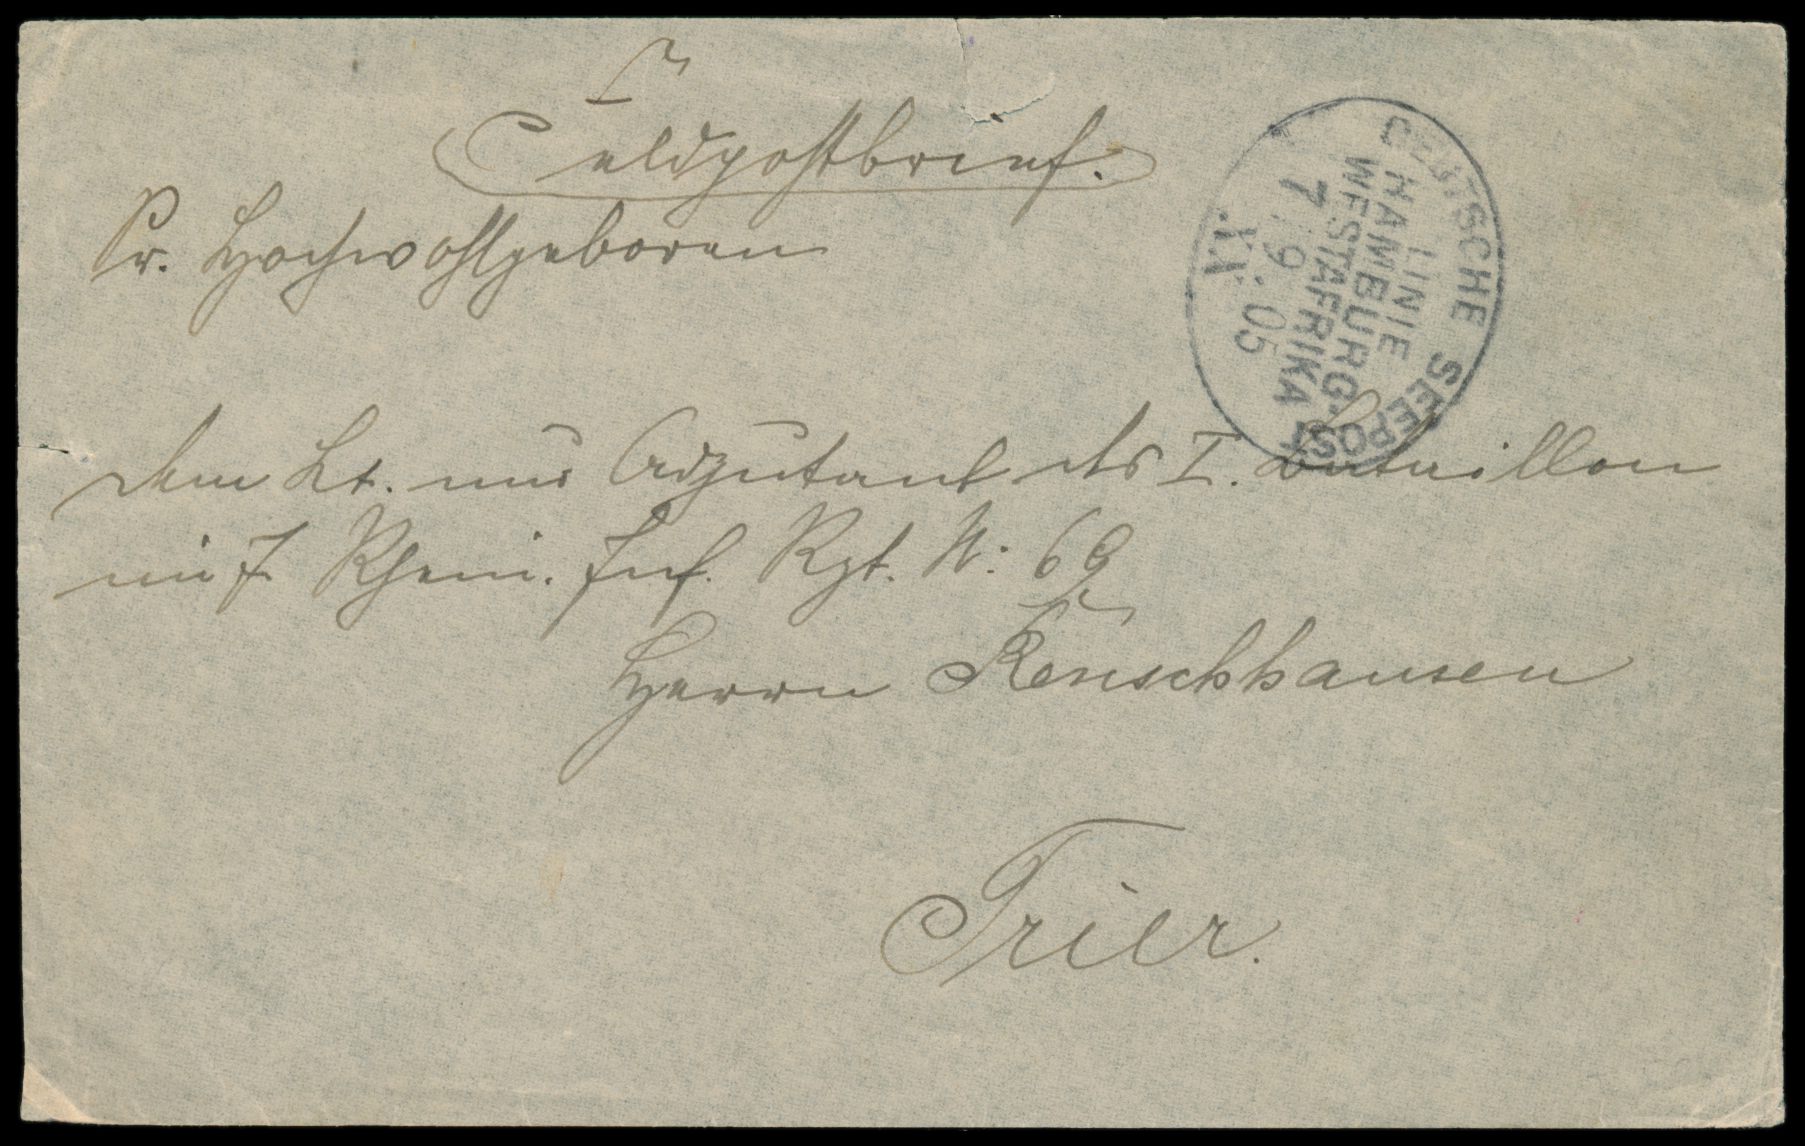 Feldpostbrief.
Sr. Hochwohlgeboren
dem Lt. und Adjutant des I. Bataillon
im 7. Rhein. Inf. Rgt. N: 69
Herrn Renschhausen
Trier.
DEUTSCHE SEEPOST
LINIE
HAMBURG-
WESTAFRIKA
7 9 05
XX